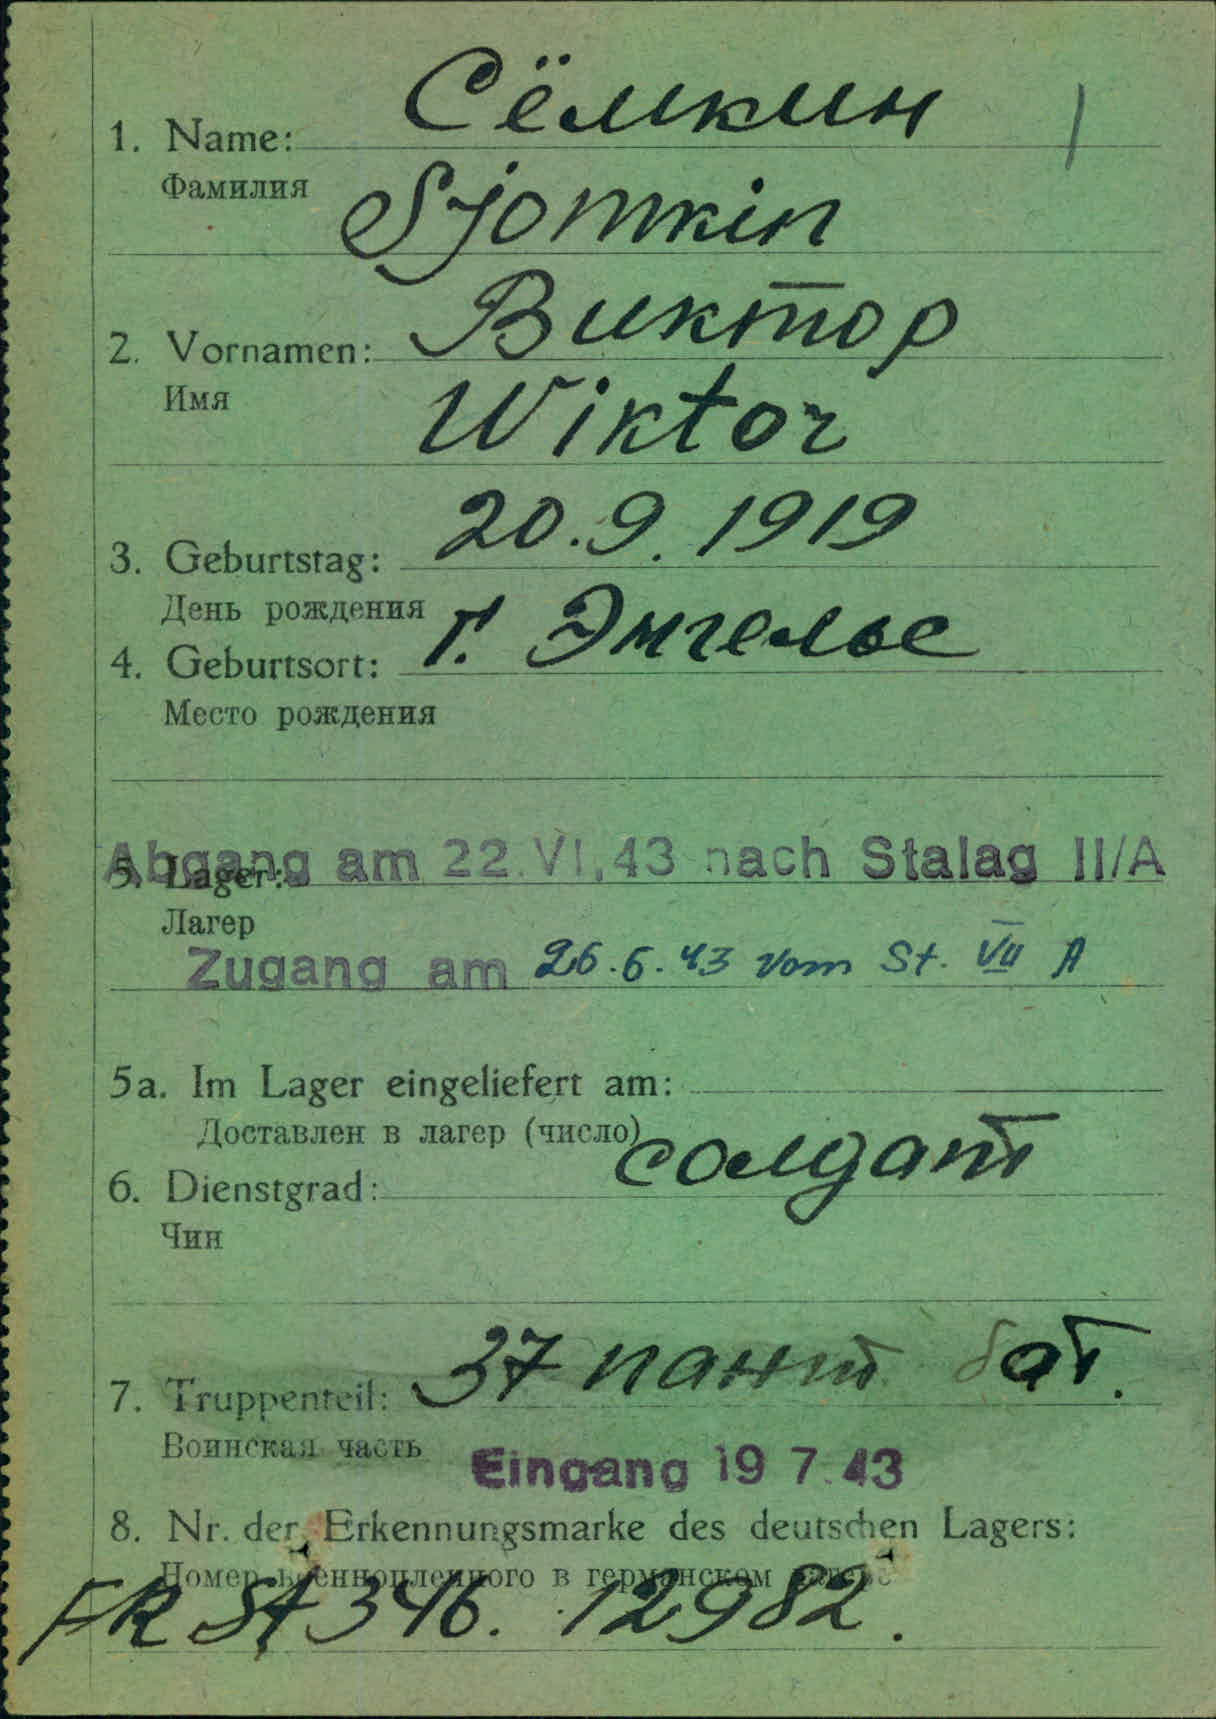 Сёмкин
1. Name:
Фамилия
Sjomkin
Виктор
2. Vornamen:
Имя
Wiktor
20.9.1919
3. Geburtstag:
День рождения
г. Энгельс
4. Geburtsort:
Место рождения
Abgang am 22.VI.43 nach Stalag II/A
5. Lager:
Лагер
Zugang am 26.6.43 vom St. VII A
5a. Im Lager eingeliefert am:
Доставлен в лагер (число)
солдат
6. Dienstgrad:
Чин
37 бат.
7. Truppenteil:
Воинская часть
Eingang 19 7.43
8. Nr. der Erkennungsmarke des deutschen Lagers:
Номер военнопленного в германском лагере
FR St 346. 12982.